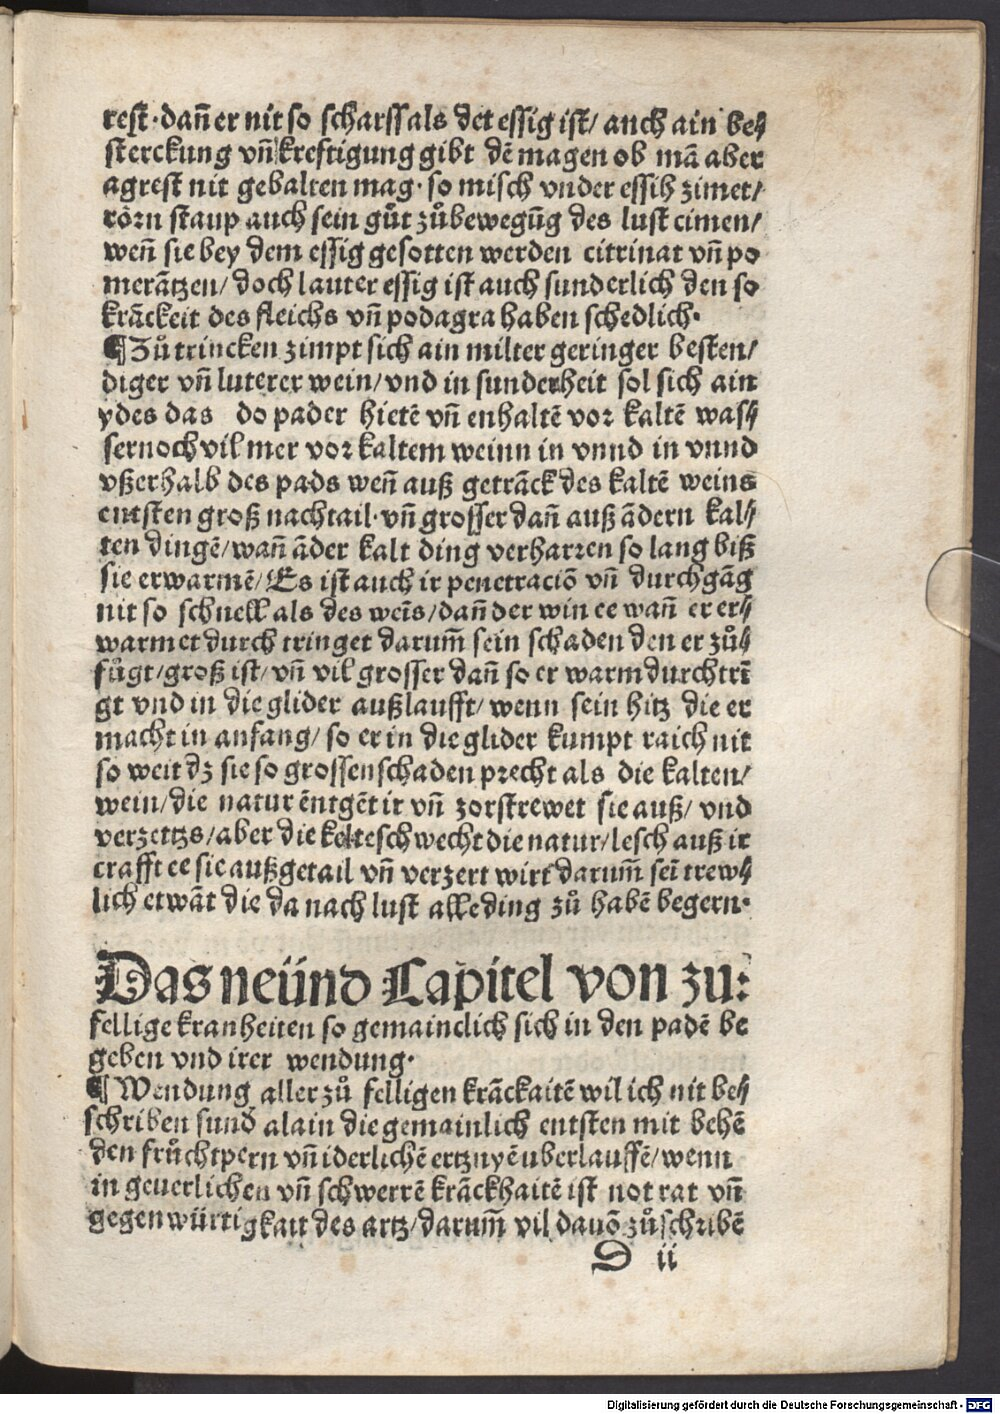 rest·dañ er nit so scharff als det essig ist/ anch ain be⸗
sterckung vñ kreftigung gibt dē magen ob mā aber
agrest nit gebalten mag· so misch vnder essih zimet/
rörn staup auch sein gůt zůbewegūg des lust cimen/
weñ sie bey dem essig gesotten werden citrinat vñ po
merātzen/ doch lauter essig ist auch sunderlich den so
krāckeit des fleichs vñ podagra haben schedlich·
¶Zů trincken zimpt sich ain milter geringer besten/
diger vñ luterer wein/ vnd in sunderheit sol sich ain
ydes das do pader hietē vñ enhaltē vor kaltē was⸗
ser noch vil mer vor kaltem weinn in vnnd in vnnd
vßerhalb des pads weñ auß geträck des kaltē weins
entsten groß nachtail· vñ grosser dañ auß ādern kal⸗
ten dingē/ wañ āder kalt ding verharren so lang biß
sie erwarmē/ Es ist auch ir penetraciō vñ durchgāg
nit so schnell als des weīs/ dañ der win ee wañ er er⸗
warmet durch tringet darum̄ sein schaden den er zů⸗
fůgt/ groß ist/ vñ vil grosser dañ so er warm durchtrī
gt vnd in die glider außlaufft/ wenn sein hitz die er
macht in anfang/ so er in die glider kumpt raich nit
so weit dz sie so grossen schaden precht als die kalten/
wein/ die natur ēntgēt ir vñ zorstrewet sie auß/ vnd
verzettzs/ aber die kelte schwecht die natur/ lesch auß ir
crafft ee sie außgetail vñ verzert wirt darum̄ seī trew⸗
lich etwāt die da nach lust alle ding zů habē begern·
Das neünd Capitel von zu:
fellige kranheiten so gemainclich sich in den padē be
geben vnd irer wendung·
¶Wendung aller zů felligen krāckaitē wil ich nit be⸗
schriben sund alain die gemainlich entsten mit behē
den frůchtpern vñ iderlichē ertznyē uberlauffē/ wenn
in geuerlichen vñ schwerrē krāckhaitē ist not rat vñ
gegenwürtigkait des artz/ darum̄ vil dauō zůschribē
D ii
Digitalisierung gefördert durch die Deutsche Forschungsgemeinschaft - DFG